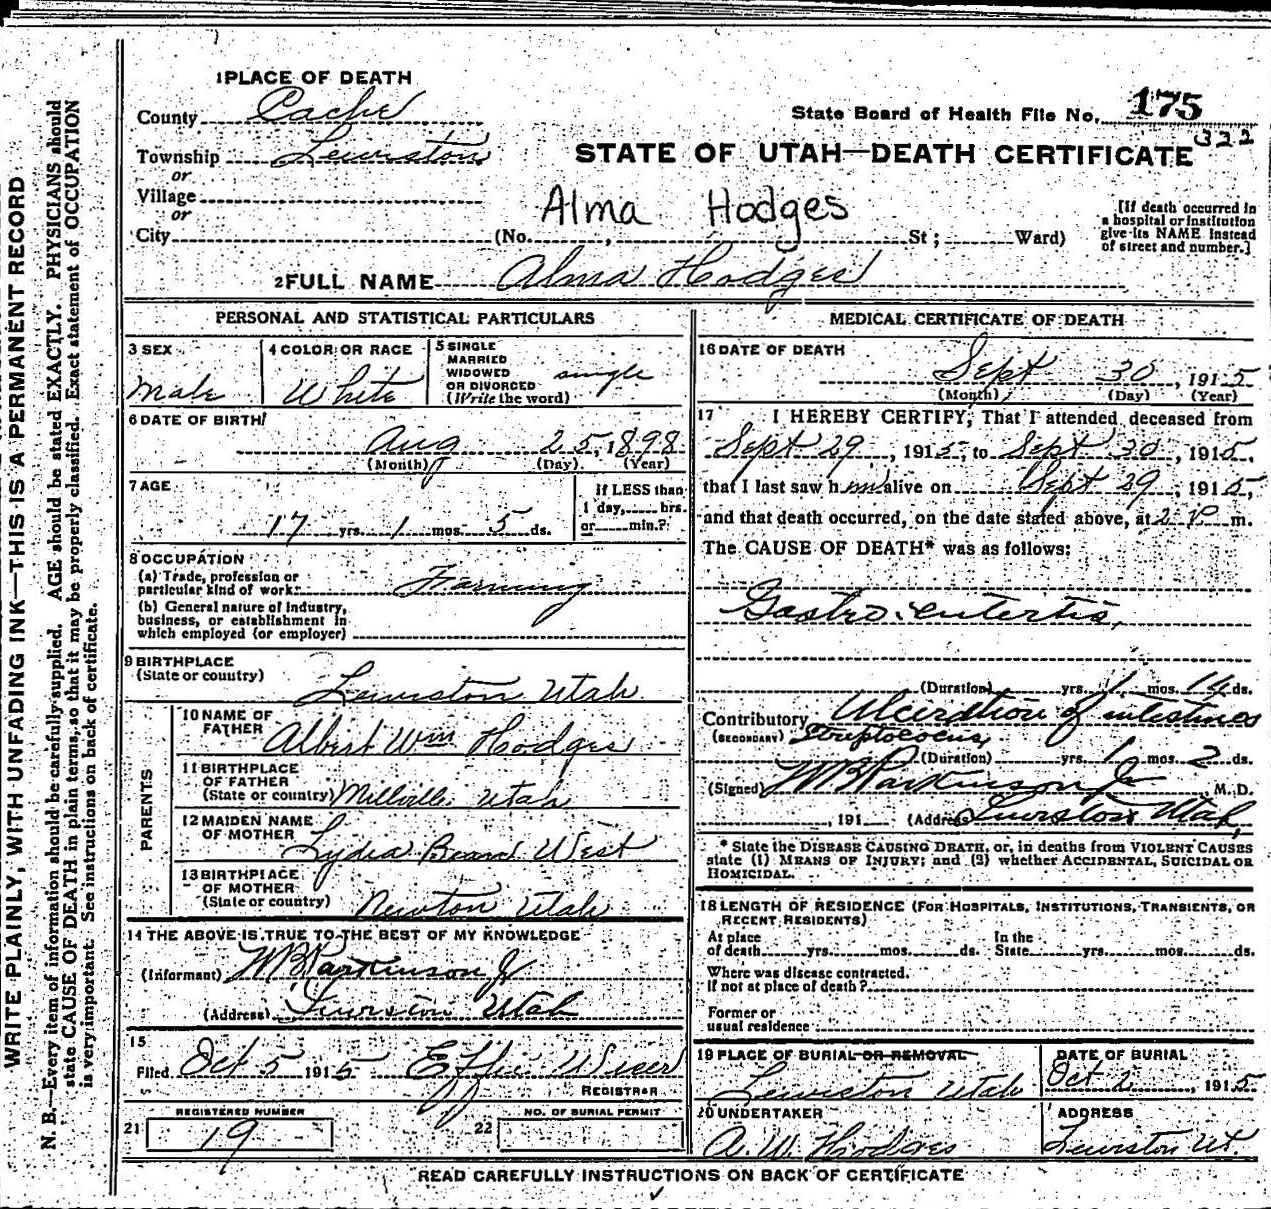 WRITE PLAINLY, WITH UNFADING INK—THIS IS A PERMANENT RECORD
N. B.—Every item of information should be carefully supplied. AGE should be stated EXACTLY. PHYSICIANS should
state CAUSE OF DEATH in plain terms, so that it may be properly classified. Exact statement of OCCUPATION
is very important. See instructions on back of certificate.
1 PLACE OF DEATH
County Cache
State Board of Health File No. 175
322
Township Lewiston
STATE OF UTAH—DEATH CERTIFICATE
or
Village
or
Alma Hodges
[If death occurred in
a hospital or institution
give its NAME instead
of street and number.]
City (No. , St ; Ward)
2 FULL NAME Alma Hodges
PERSONAL AND STATISTICAL PARTICULARS
3 SEX
Male
4 COLOR OR RACE
White
5 SINGLE
MARRIED
WIDOWED
OR DIVORCED
(Write the word)
single
6 DATE OF BIRTH
Aug 25, 1898
(Month) (Day) (Year)
7 AGE
17 yrs. 1 mos. 5 ds.
If LESS than
1 day, hrs.
or min.?
8 OCCUPATION
(a) Trade, profession or
particular kind of work Farming
(b) General nature of industry,
business, or establishment in
which employed (or employer)
9 BIRTHPLACE
(State or country) Lewiston Utah
PARENTS
10 NAME OF
FATHER Albert Wm Hodges
11 BIRTHPLACE
OF FATHER
(State or country) Millville Utah
12 MAIDEN NAME
OF MOTHER Lydia West
13 BIRTHPLACE
OF MOTHER
(State or country) Newton Utah
14 THE ABOVE IS TRUE TO THE BEST OF MY KNOWLEDGE
(Informant) W B Parkinson Jr
(Address) Lewiston Utah
15
Filed Oct 5 1915 Effie Wiser
REGISTRAR
21 REGISTERED NUMBER
19
22 NO. OF BURIAL PERMIT
MEDICAL CERTIFICATE OF DEATH
16 DATE OF DEATH
Sept 30, 1915
(Month) (Day) (Year)
17 I HEREBY CERTIFY, That I attended deceased from
Sept 29, 1915, to Sept 30, 1915,
that I last saw him alive on Sept 29, 1915,
and that death occurred, on the date stated above, at 2 P m.
The CAUSE OF DEATH* was as follows:
Gastro. entertis,
(Duration) yrs. 1 mos. 14 ds.
Contributory Ulceration of intestines
(SECONDARY) Streptococus,
(Duration) yrs. 1 mos. 2 ds.
(Signed) W B Parkinson Jr, M. D.
, 191 (Address Lewiston Utah,
* State the DISEASE CAUSING DEATH, or, in deaths from VIOLENT CAUSES
state (1) MEANS OF INJURY; and (2) whether ACCIDENTAL, SUICIDAL OR
HOMICIDAL.
18 LENGTH OF RESIDENCE (FOR HOSPITALS, INSTITUTIONS, TRANSIENTS, OR
RECENT RESIDENTS)
At place
of death yrs. mos. ds.
In the
State yrs. mos. ds.
Where was disease contracted.
If not at place of death?
Former or
usual residence
19 PLACE OF BURIAL OR REMOVAL
Lewiston Utah
DATE OF BURIAL
Oct 2, 1915
20 UNDERTAKER
A. W. Hodges
ADDRESS
Lewiston Ut.
READ CAREFULLY INSTRUCTIONS ON BACK OF CERTIFICATE